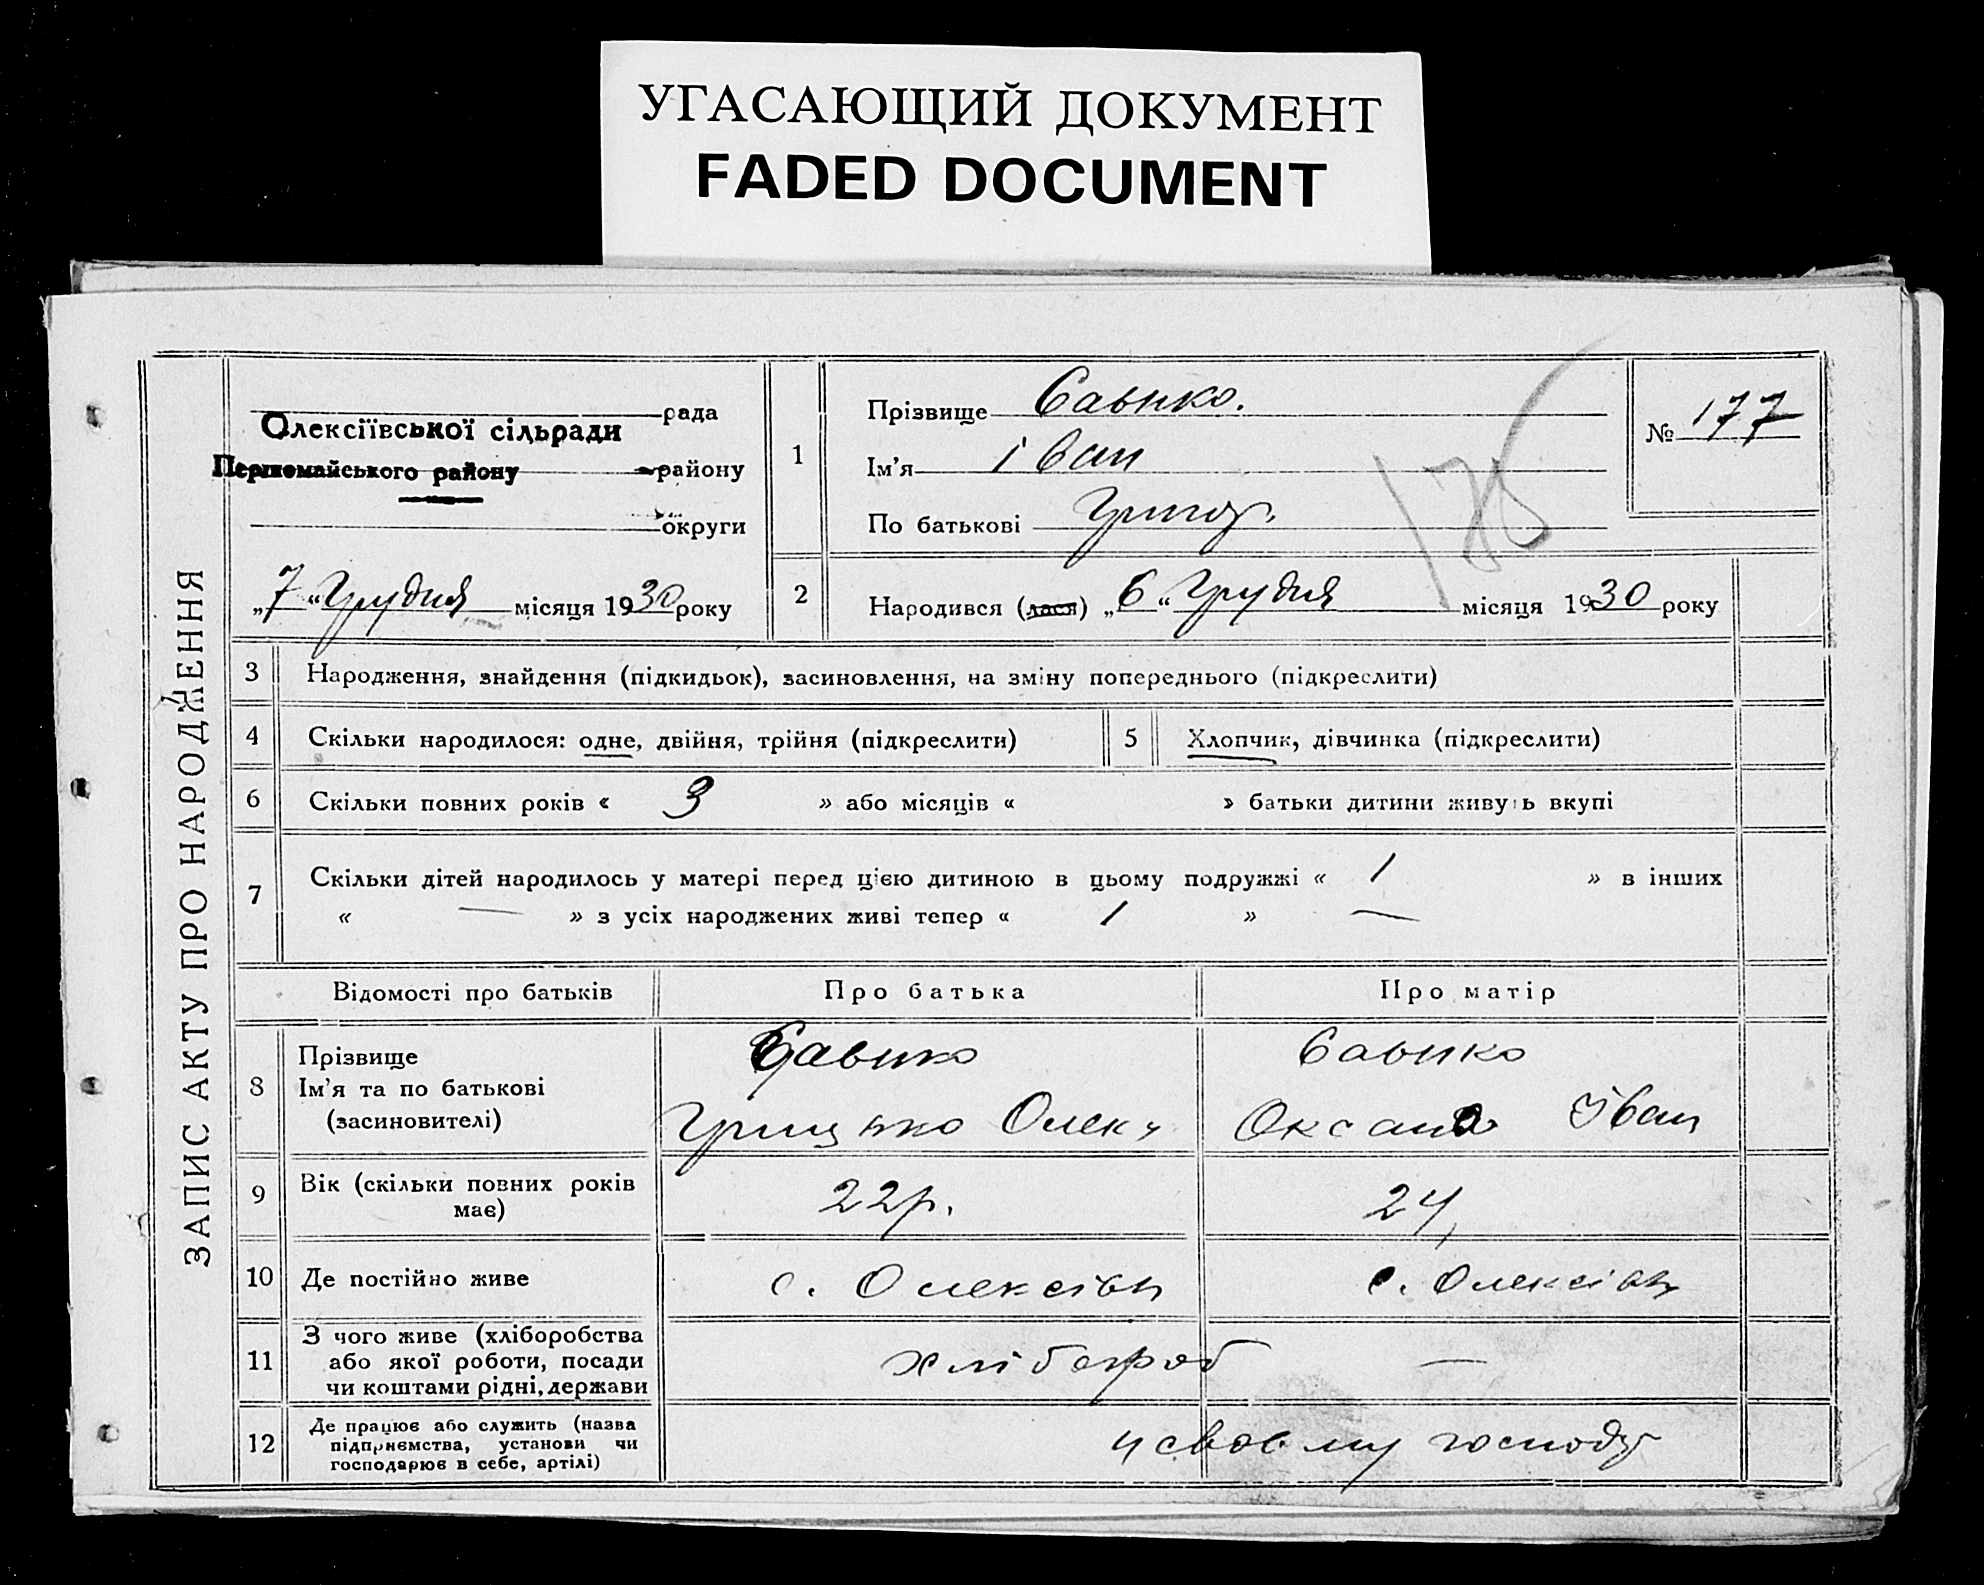 УГАСАЮЩИЙ ДОКУМЕНТ
FADED DOCUMENT
ЗАПИС АКТУ ПРО НАРОДЖЕННЯ
рада
Олексіївської сільради
Першомайського району району
округи
„7“ Грудня місяця 1930 року
1
Прізвище Савико.
Ім'я Іван
По батькові Григор.
№ 177
178
2
Народився (лася) „6“ Грудня місяця 1930 року
3 Народження, знайдення (підкидьок), засиновлення, на зміну попереднього (підкреслити)
4 Скільки народилося: одне, двійня, трійня (підкреслити) 5 Хлопчик, дівчинка (підкреслити)
6 Скільки повних років « 3 » або місяців « » батьки дитини живуть вкупі
7 Скільки дітей народилось у матері перед цією дитиною в цьому подружжі « 1 » в інших
« — » з усіх народжених живі тепер « 1 » —
Відомості про батьків Про батька Про матір
8 Прізвище Савико Савико
Ім'я та по батькові Грицько Олекс Оксана Іван
(засиновителі)
9 Вік (скільки повних років має) 22р. 24
10 Де постійно живе с. Олексіївц с. Олексіївц
11 З чого живе (хліборобства
або якої роботи, посади хлібороб —
чи коштами рідні, держави
12 Де працює або служить (назва
підприємства, установи чи у своєму господ
господарює в себе, артілі)